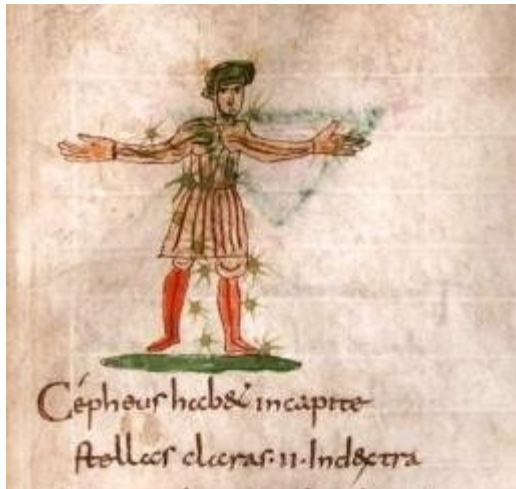 Cépheus hab& in capite
stellas claras · ii · In dextra